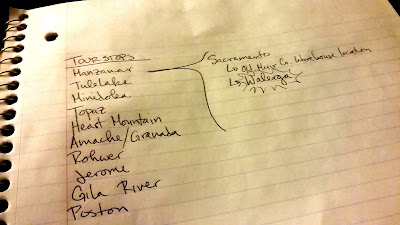 TOUR STOPS
Manzanar
Tule Lake
Minidoka
Topaz
Heart Mountain
Amache/Granada
Rohwer
Jerome
Gila River
Poston
Sacramento
↳ Old Co. Warehouse location
↳ Walerga